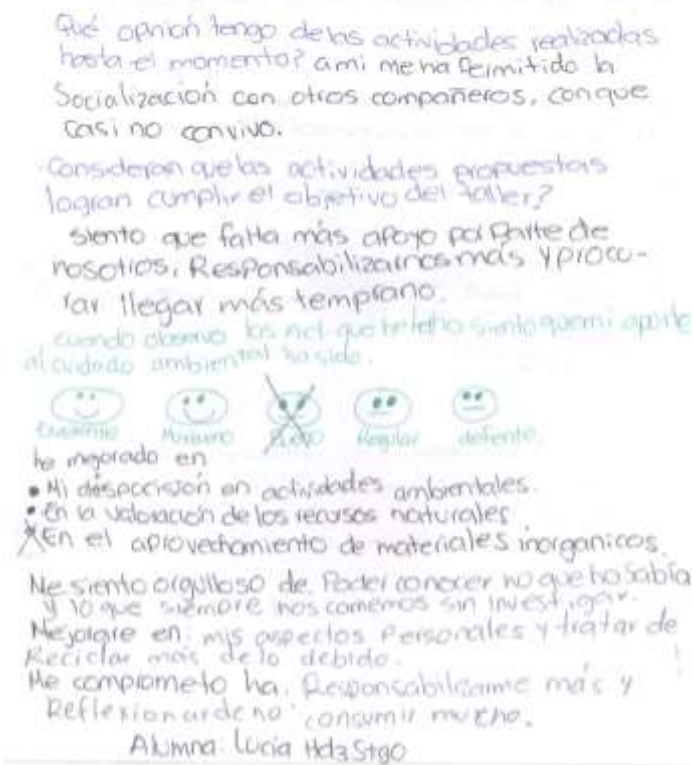 Qué opnión tengo de las actividades realizadas
hasta el momento? a mi me ha Permitido la
Socialización con otros compañeros, con que
casi no convivo.
Consideran que las actividades propuestas
logran cumplir el objetivo del taller?
siento que falta más apoyo por Parte de
nosotros, Responsabilizarnos más y procu-
rar llegar más temprano.
cuando observo las act que he hecho siento que mi aporte
al cuidado ambiental ha sido.
Excelente Muy bueno Bueno Regular defiente
he mejorado en
• Mi en actividades ambientales.
• En la valoración de los recursos naturales
X En el aprovechamiento de materiales inorganicos.
Me siento orgulloso de. Poder conocer no que no sabía
y lo que siempre nos comemos sin investigar.
Mejorare en: mis aspectos Personales y tratar de
Reciclar más de lo debido.
Me comprometo ha. Responsabilisarme más y
Reflexionar de no consumir mucho.
Alumna: Lucía Hdz Stgo